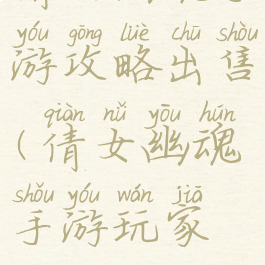 yóu gōng lüè chū shòu
游攻略出售
qiàn nǚ yōu hún
(倩女幽魂
shǒu yóu wán jiā
手游玩家